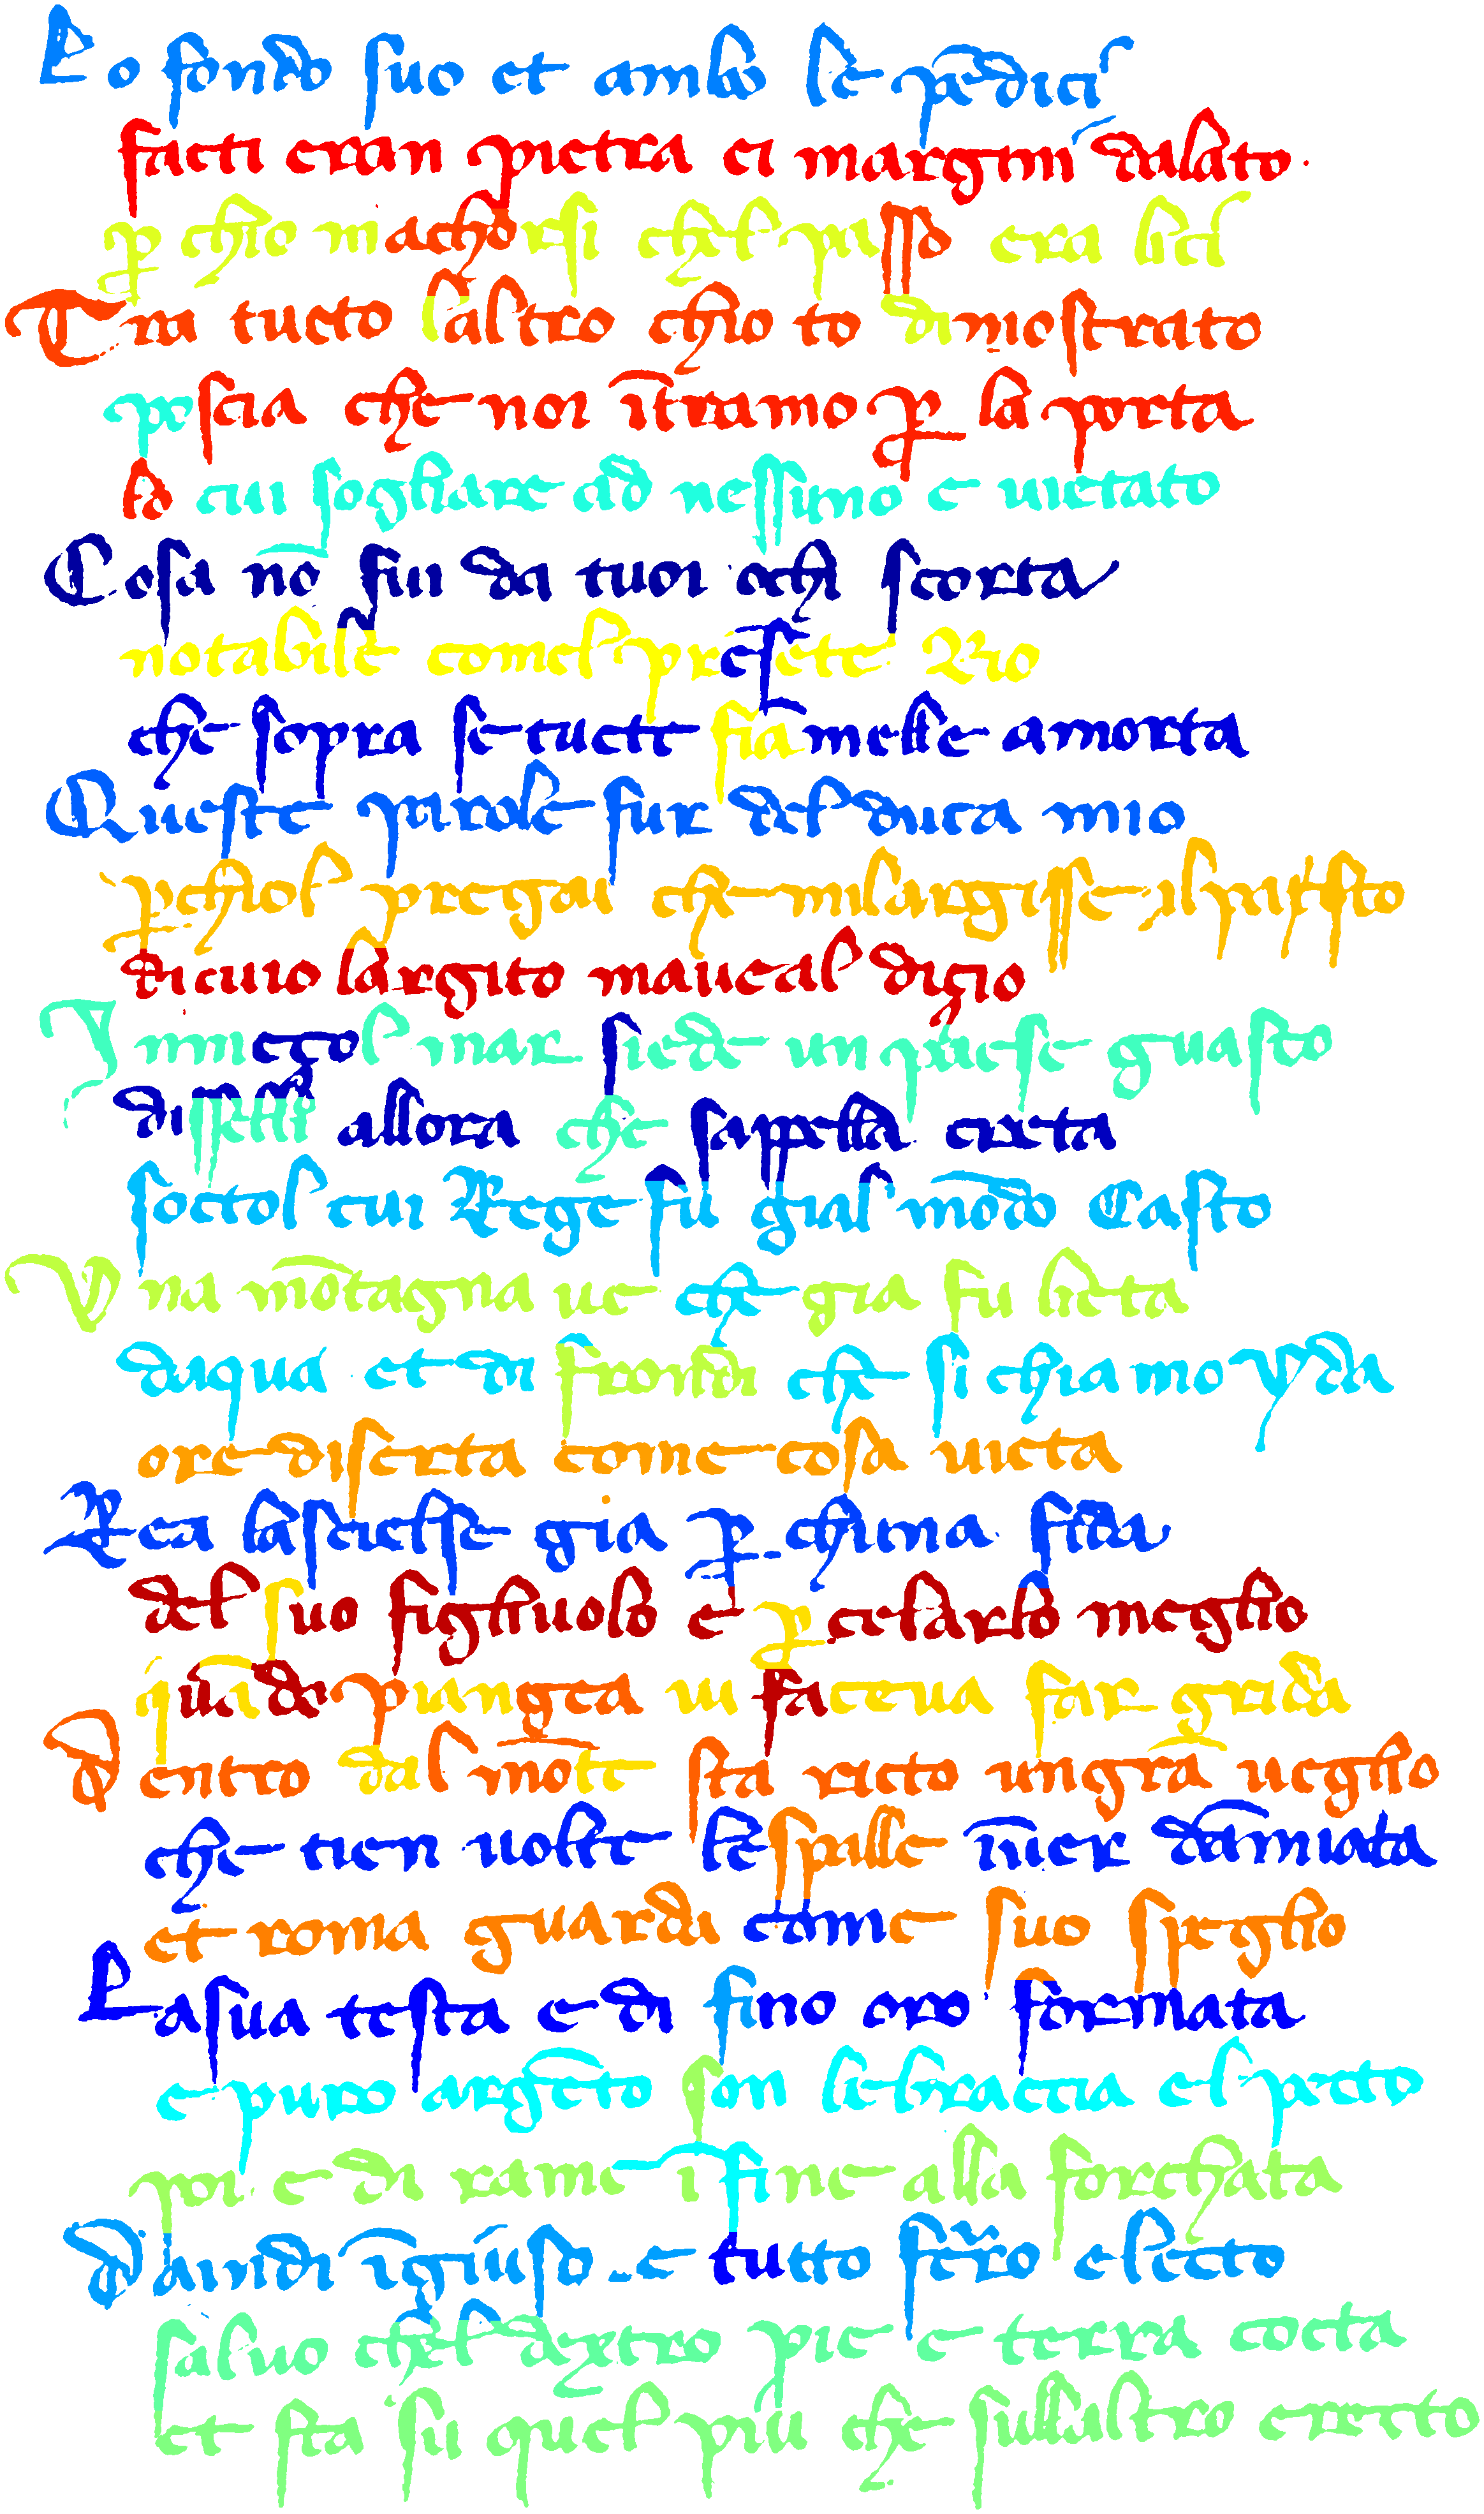 Lo fondo suo et ambo le pendici
fatti eran pietra e i margini dallato
p chio maccorsi chel passo era lici
Tra tutto laltro chio to dimostrato
poscia che noi ītrammo p la porta
lo cui sogliare ad nessuno e uietato
Cosa nō fu da tuoi ochi scorta
notabile comel presēte rio
che sopra se tutte fiamelle amorta
Queste parole fur del duca mio
p chiol pregai che mi largisse il pasto
di cui largito mauea il disio
In mezo l mar siede un paese guasto
dissellj allora che sappella creta
sottol cui rege fu gia l mōdo casto
Una mōtagna ue che gia fu lieta
daqua et di frondi che si chiamo yda
ore diserta come cosa uieta
Rea la scelse gia p chuna fida
del suo figliuolo e p celarlo meglio
quādo piangea ui facea far grida
Dentro dal mōte sta ritto un grā ueglio
che tien uolte le spalle īuer dāmiata
et roma guarda come suo speglio
La sua testa e di fino oro formata
e puro argēto son le braccia el petto
poi e di rame īfine alla forchata
Da indi īgiuso e tutto ferro eletto
saluo chel dextro pie e terra cotta
et sta su quel piu che sullaltro eretto